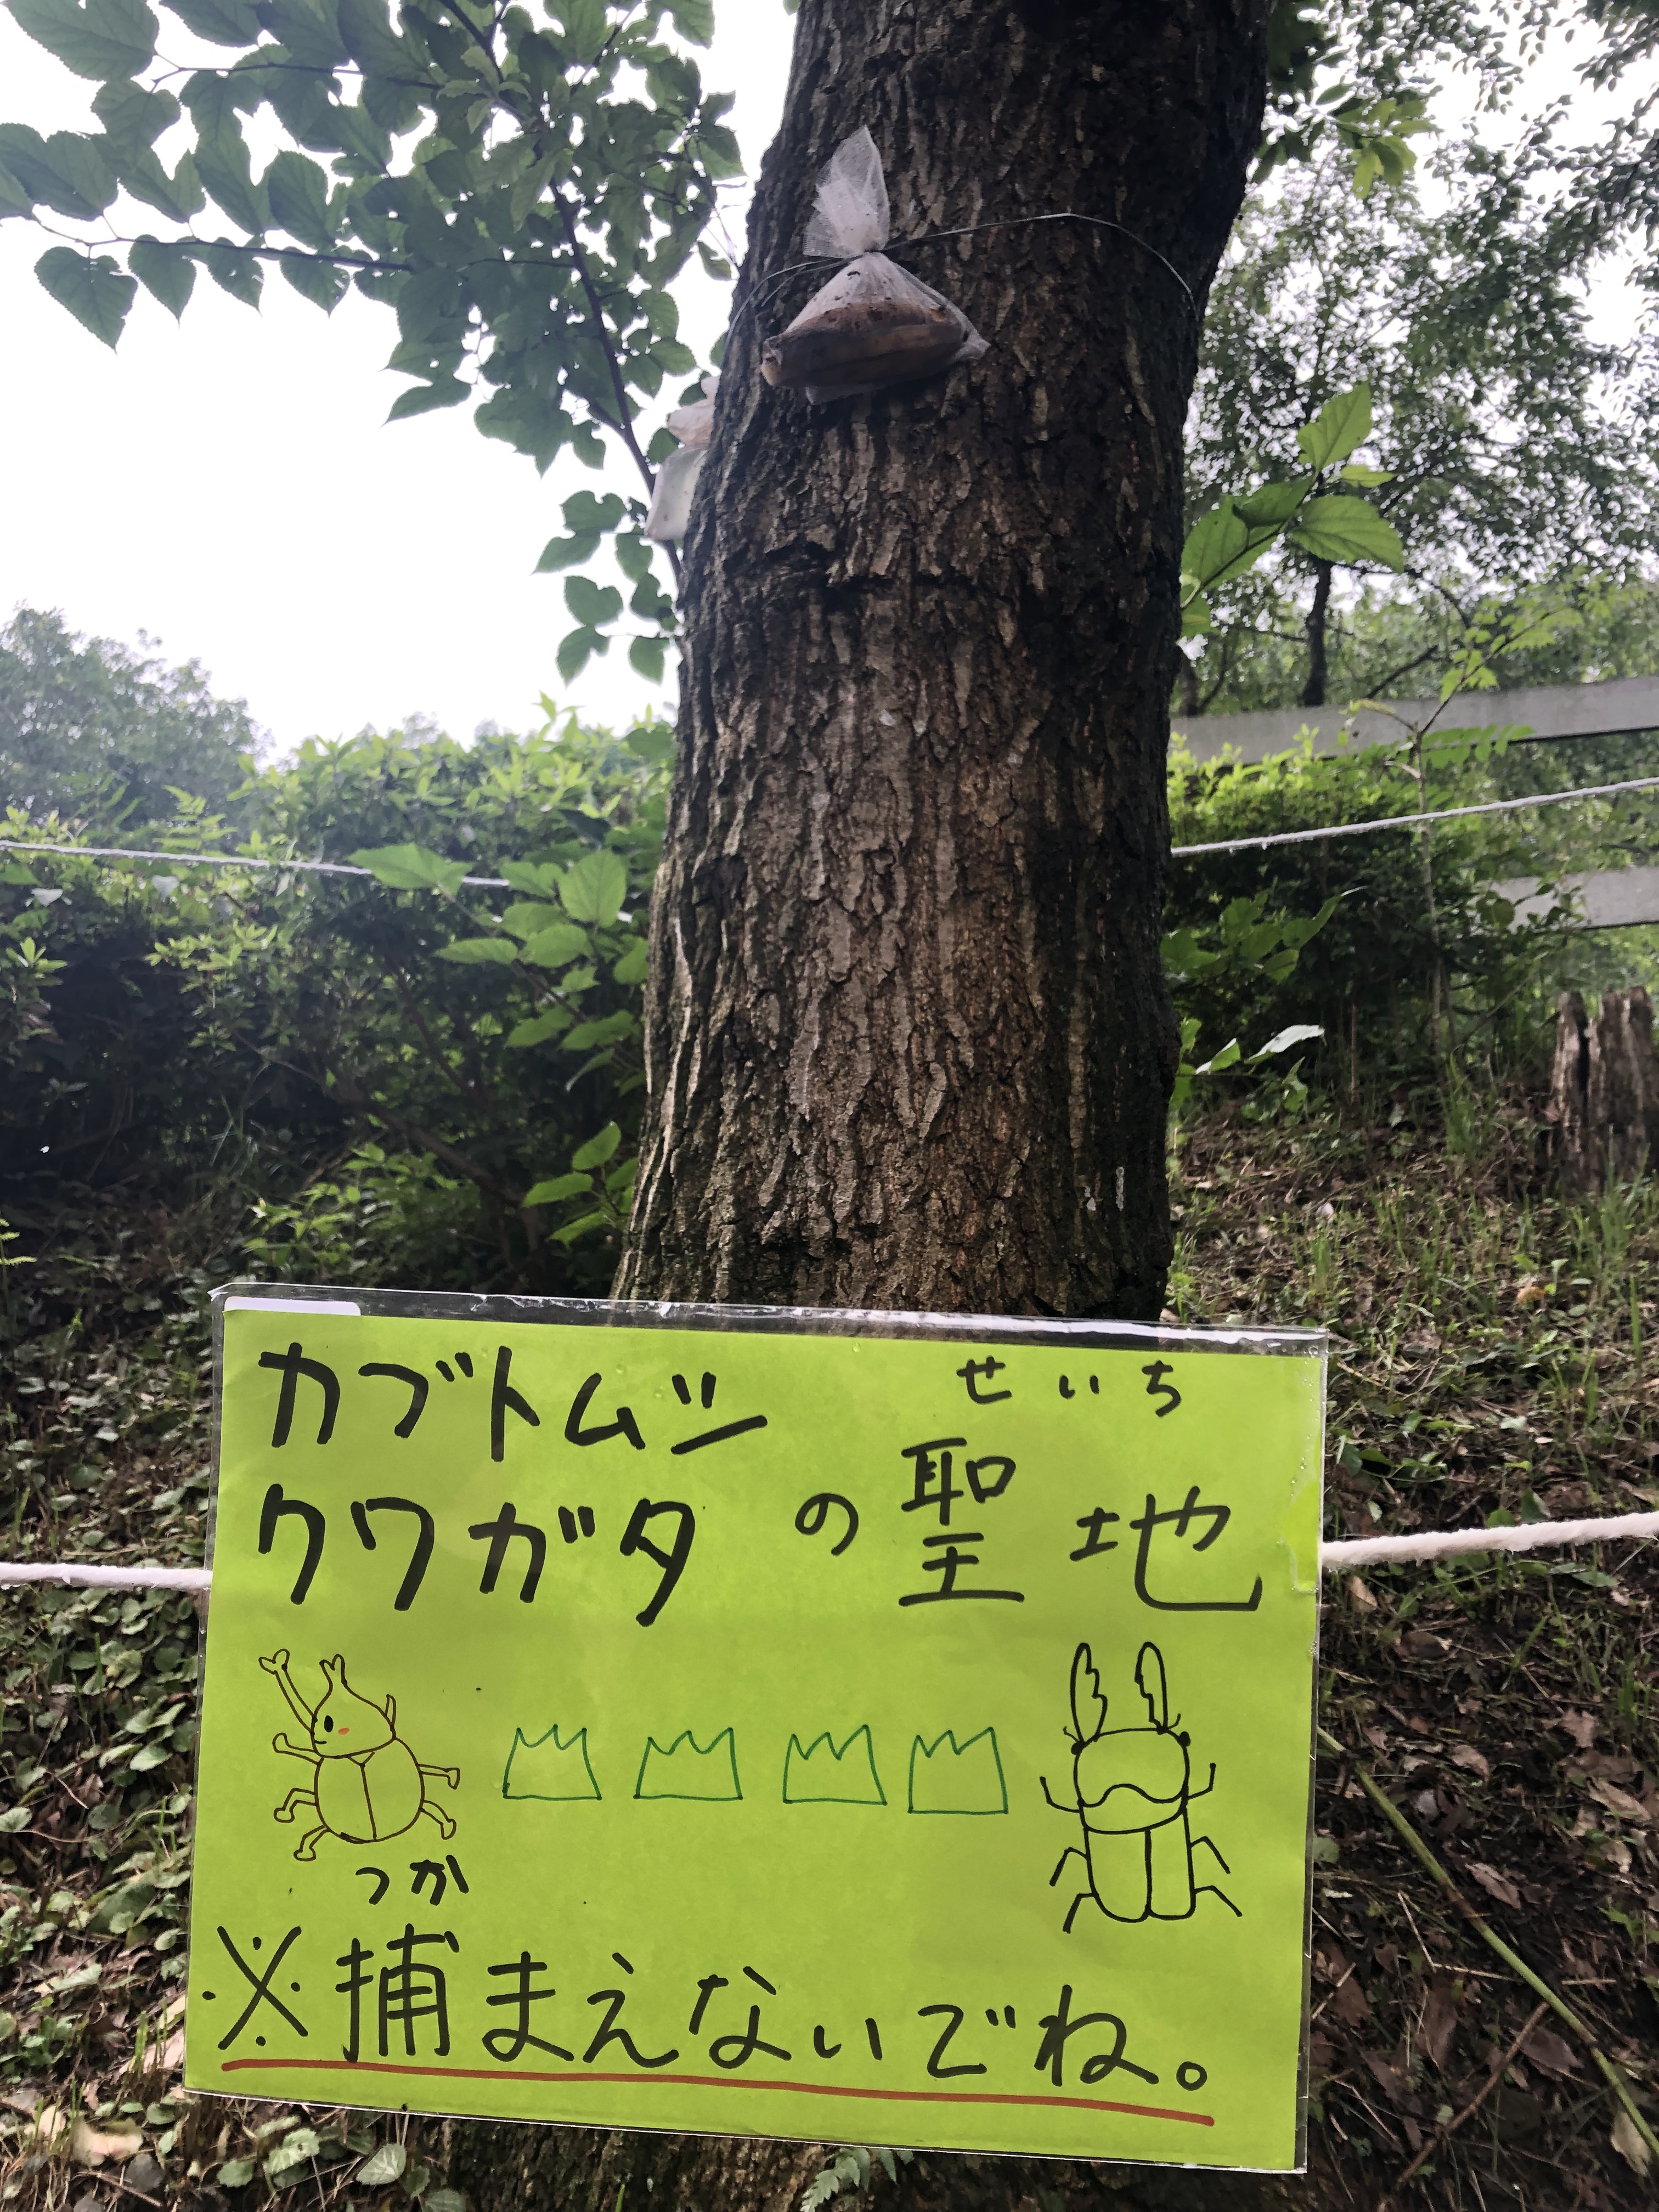 カブトムシ
せいち
クワガタ の 聖地
つか
※捕まえないでね。